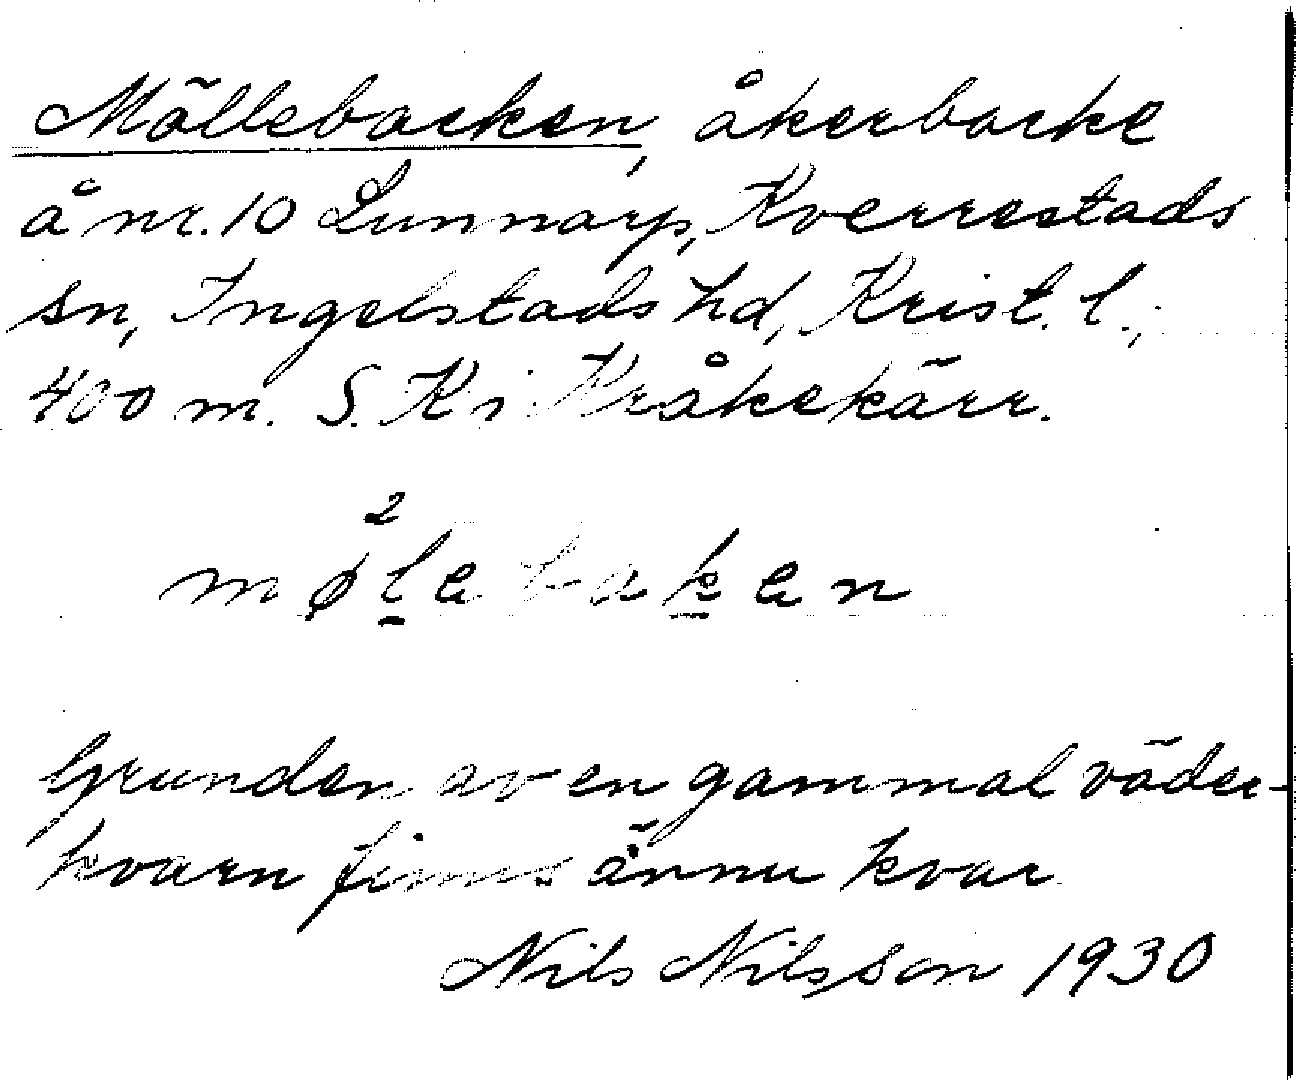 Möllebacken, åkerbacke
å nr. 10 Lunnarp, Kverrestads
sn, Ingelstads hd, Krist. l.,
400 m. S. K i Kråkekärr.
2
mølebaken
Grunden av en gammal väder-
kvarn finns ännu kvar
Nils Nilsson 1930